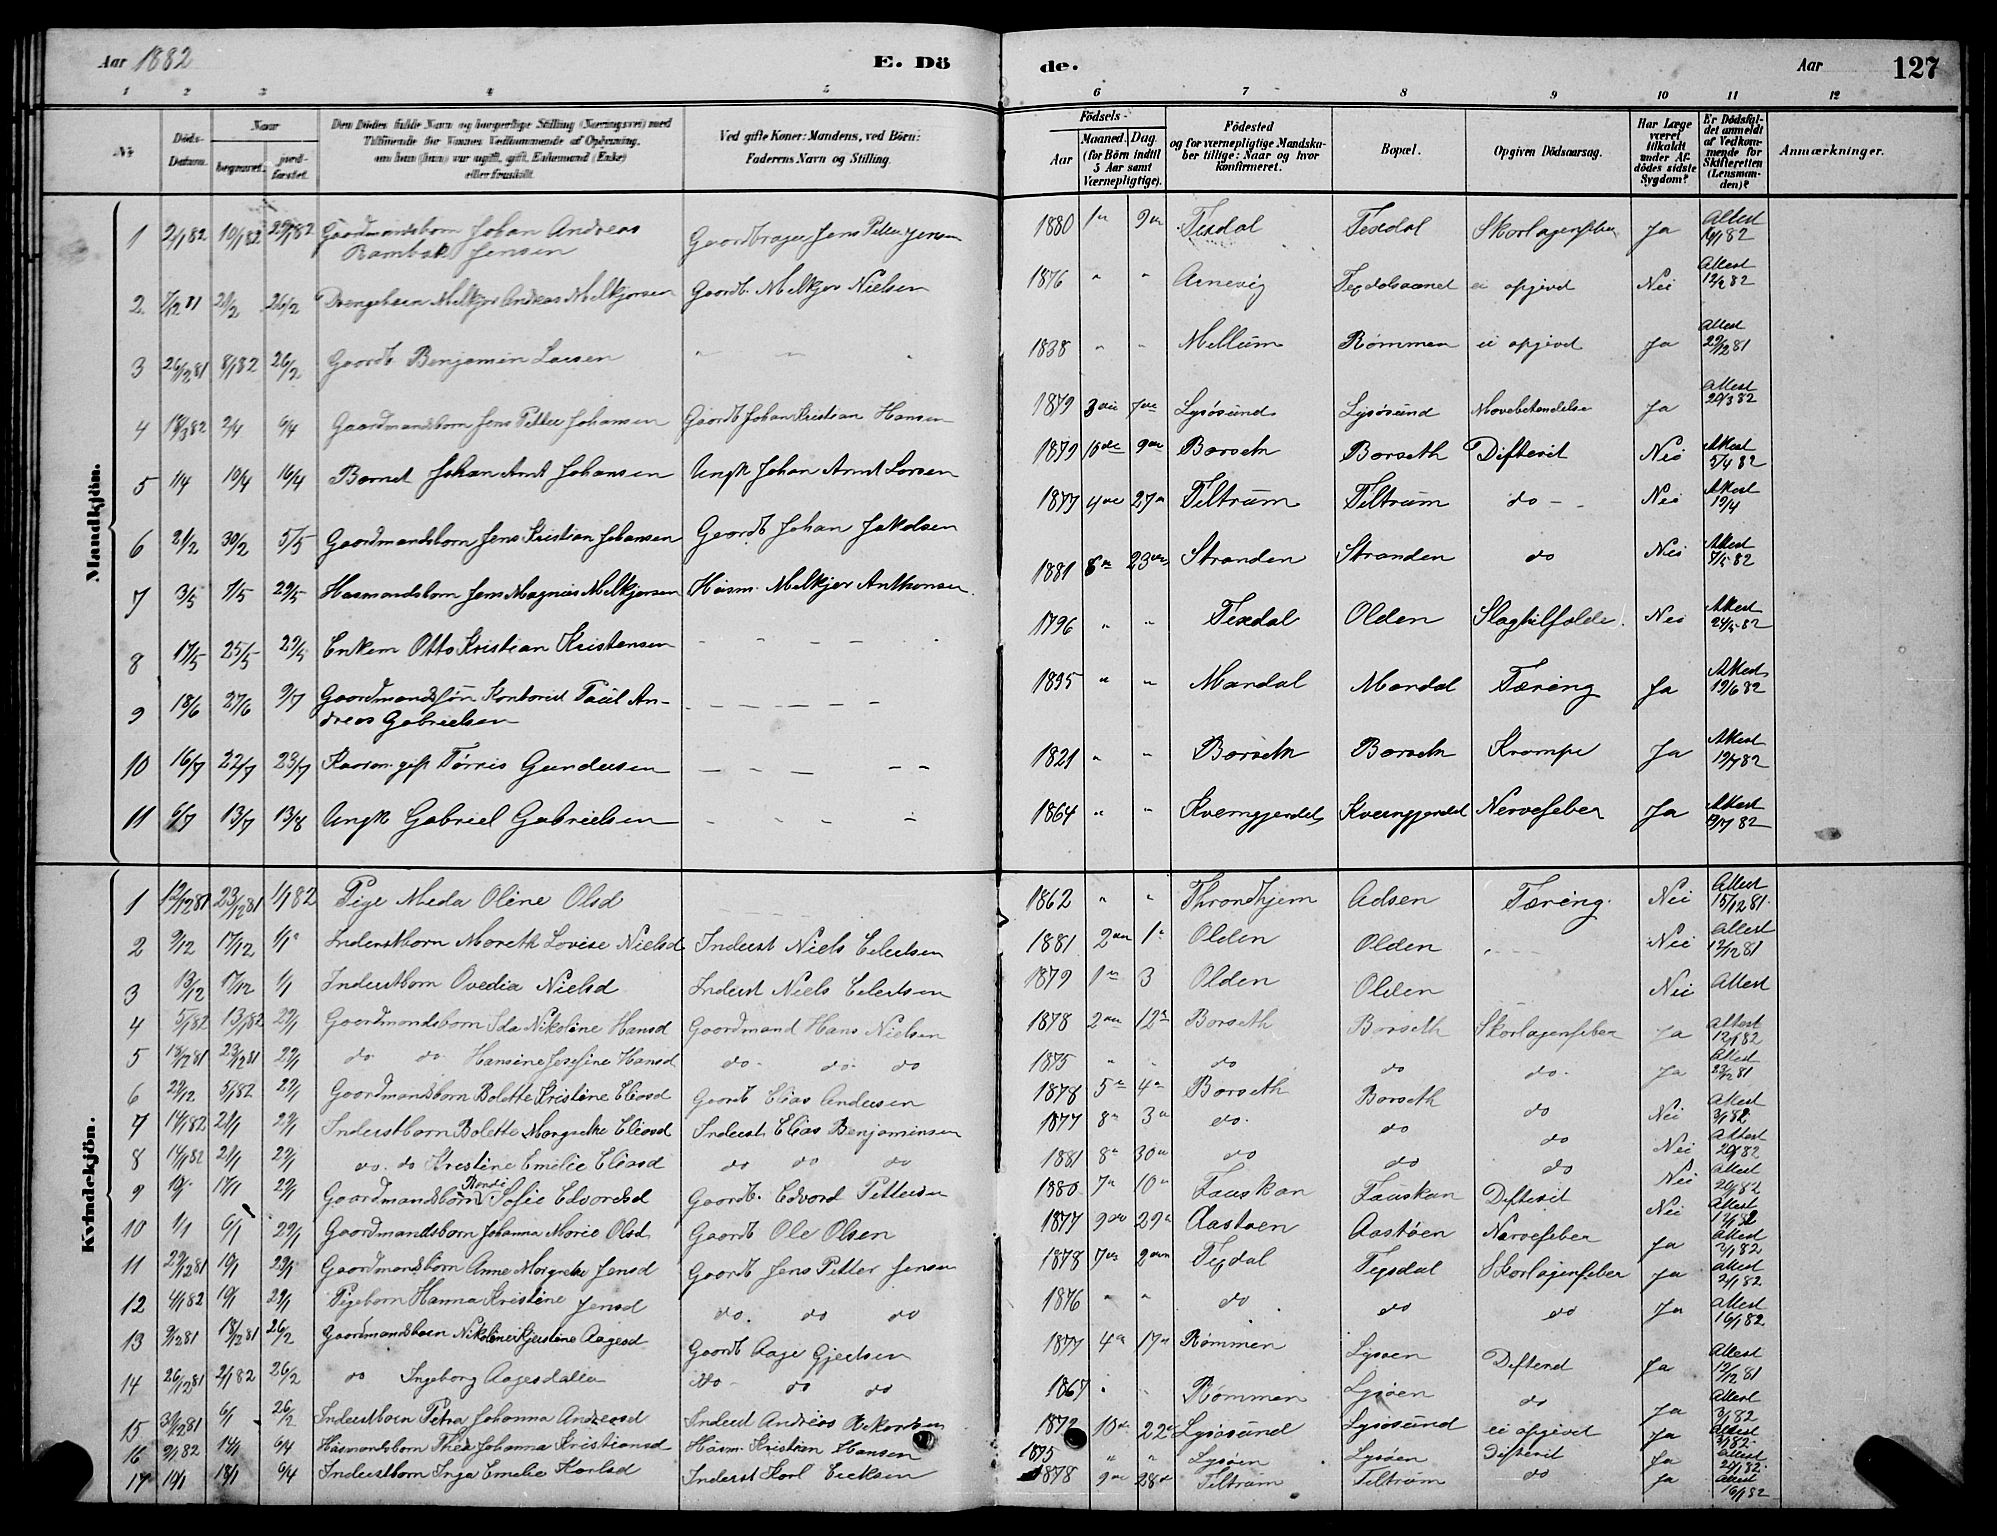 Aar 1882 E. Dö
de. Aar 127
1 2 3 4 5 6 7 8 9 10 11 12
No Döds-Datum. Naar begravet. jord-fæstet. Den Dödes fulde Navn og borgerlige Stilling (Næringsvei) med Tilföiende for Voxnes Vedkommende af Oplysning, om han (hun) var ugift, gift, Enkemand (Enke) eller fraskilt. Ved gifte Koner: Mandens, ved Börn: Faderens Navn og Stilling.
Födsels- Aar Maaned. Dag. (for Börn indtil 5 Aar samt Værnepligtige). Födested og for værnepligtige Mandskaber tillige: Naar og hvor konfirmeret. Bopæl. Opgiven Dödsaarsag. Har Læge været tilkaldt under Afdödes sidste Sygdom? Er Dödsfaldet anmeldt af Vedkommende for Skifteretten (Lensmanden)? Anmærkninger.
Mandkjön.
1 2/1 82 10/1 82 29/1 82 Gaardmandsbarn Johan Andreas Rambak Jensen Gaardbruger Jens Petter Jensen 1880 1 9 Texdal Texdal Skarlagensfeber Ja Attest 16/1 82
2 7/12 81 21/2 26/2 Drengebarn Melkjor Andreas Melkjorsen Gaardb. Melkjor Nielsen 1876 " " Arnevig Texdalsvand ei opgived Nei Attest 12/2 82
3 26/12 81 8/1 82 26/2 Gaardb Benjamin Larsen " " " 1838 " " Mellum Rømmen ei opgived Ja Attest 29/12 81
4 18/3 82 2/4 6/4 Gaardmandsbarn Jens Petter Johansen Gaardb Johan Kristian Hansen 1879 3 7 Lysøsund Lysøsund Mavebetændelse Ja Attest 20/3 82
5 1/4 10/4 16/4 Barnet Johan Arnt Johansen Ungk Johan Arnt Larsen 1879 10 9 Barseth Barseth Difterit Nei Attest 5/4 82
6 21/2 30/2 5/5 Gaardmandsbarn Jens Kristian Johansen Gaardb Johan Jakobsen 1877 4 27 Teltrum Teltrum do - Nei Attest 19/4
7 3/5 7/5 29/5 Husmandsbarn Jens Magnus Melkjorsen Husm. Melkjor Anthonsen. 1881 8 23 Stranden Stranden do Nei Attest 7/5 82
8 17/5 25/5 29/5 Enkem Otto Kristian Kristensen - - - - 1796 " " Texdal Olden Slagtilfælde. Nei Attest 24/5 82
9 18/6 27/6 9/7 Gaardmandssøn Kontorist Paul Andreas Gabrielsen - - - - - 1835 " " Mardal Mardal Tæring Ja Attest 19/6 82
10 16/7 22/7 23/7 Kaarm. gift Tørris Gundersen - - - - - 1821 " " Barseth Barseth Krampe Ja Attest 19/7 82
11 6/7 13/7 13/8 Ungk Gabriel Gabrielsen - - - - 1864 " " Kverngjerdet Kverngjerdet Nervefeber Ja Attest 13/7 82
Kvindekjön.
1 12/12 81 23/12 81 1/1 82 Pige Meda Oline Olsd 1862 " " Throndhjem Adsen Tæring. Nei Attest 15/12 81.
2 9/12 17/12 1/1 Inderstbarn Mareth Lovise Nielsd Inderst Niels Eilertsen 1881 2 1 Olden Olden . - - Nei Attest 12/12 81
3 13/12 17/12 1/1 Inderstbarn Ovedia Nielsd Inderst Niels Eilertsen 1879 1 3 Olden Olden Nei Attest
4 5/1 82 13/1 82 29/1 Gaardmandsbarn Ida Nikoline Hansd Gaardmand Hans Nielsen 1878 2 12 Barseth Barseth Skarlagensfeber Ja Attest 12/1 82
5 18/12 81 23/12 81 29/1 do do Hansine Josefine Hansd do- do do 1875 " " do do do- Ja Attest 23/12 81
6 29/12 5/1 82 29/1 Gaardmandsbarn Bolette Kristine Eliasd Gaardb Elias Andersen 1878 5 4 Barseth Barseth do Nei Attest 3/1 82
7 14/1 82 21/1 29/1 Inderstbarn Bolette Margrethe Eliasd Inderst Elias Benjaminsen 1877 8 3 do. do do Nei Attest 20/1 82
8 14/1 82 21/1 29/1 do. do Kristine Emelie Eliasd do do do 1881 8 30 do do do Nei Attest 20/1 82
9 10/1 17/1 29/1 Gaardmandsbarn Randi Sofie Edvardsd Gaardb. Edvard Pettersen 1880 7 10 Fauskan Fauskan Difterit Nei Attest 17/1 82
10 1/1 6/1 29/1 Gaardmandsbarn Johanna Marie Olsd. Gaardb Ole Olsen 1877 9 29 Aastøen Aastøen Nervefeber Ja Attest 3/1 82
11 29/12 81 10/1 29/1 Gaardmandsbarn Anne Margrethe Jensd Gaardb Jens Petter Jensen 1878 7 2 Texdal Texdal Skarlagensfeber Ja Attest 2/1 82
12 4/1 82 10/1 29/1 Pigebarn Hanna Kristine Jensd do. do do 1876 " " do do do Ja Attest 16/1 82
13 9/12 81 18/12 81 26/2 Gaardmandsbarn Nikoline Kjerstine Aagesd Gaardb Aage Gjertsen 1877 4 17 Rømmen Lysøen Difterit Ja Attest 12/12 81
14 26/12 81 2/1 82 26/2 do Ingeborg Aagesdatter do- do do 1867 " " Rømmen Lysøen do Ja Attest 3/1 82
15 30/12 81 6/1 26/2 Inderstbarn Petra Johanna Andreasd Inderst Andreas 1872 10 22 Lysøsund Lysøsund ei opgived Ja Attest 3/1 82
16 9/1 82 14/1 6/4 Husmandsbarn Thea Johanna Kristiansd Husm. Kristian Hansen 1875 " " Lysøen Lysøen Difterit Ja Attest 20/1 82
17 10/1 18/1 6/4 Inderstbarn Inga Emelie Karlsd Inderst Karl Eriksen 1878 9 28 Teltrum Teltrum do Ja Attest 16/1 82